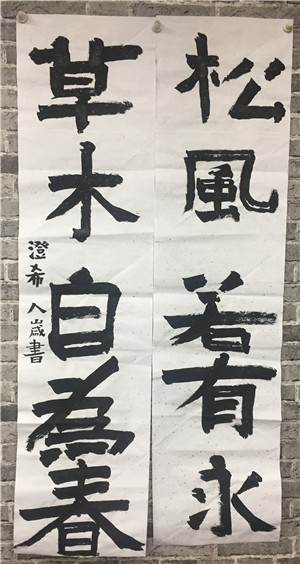 松風若有永
草木白為春
澄希 八歲書